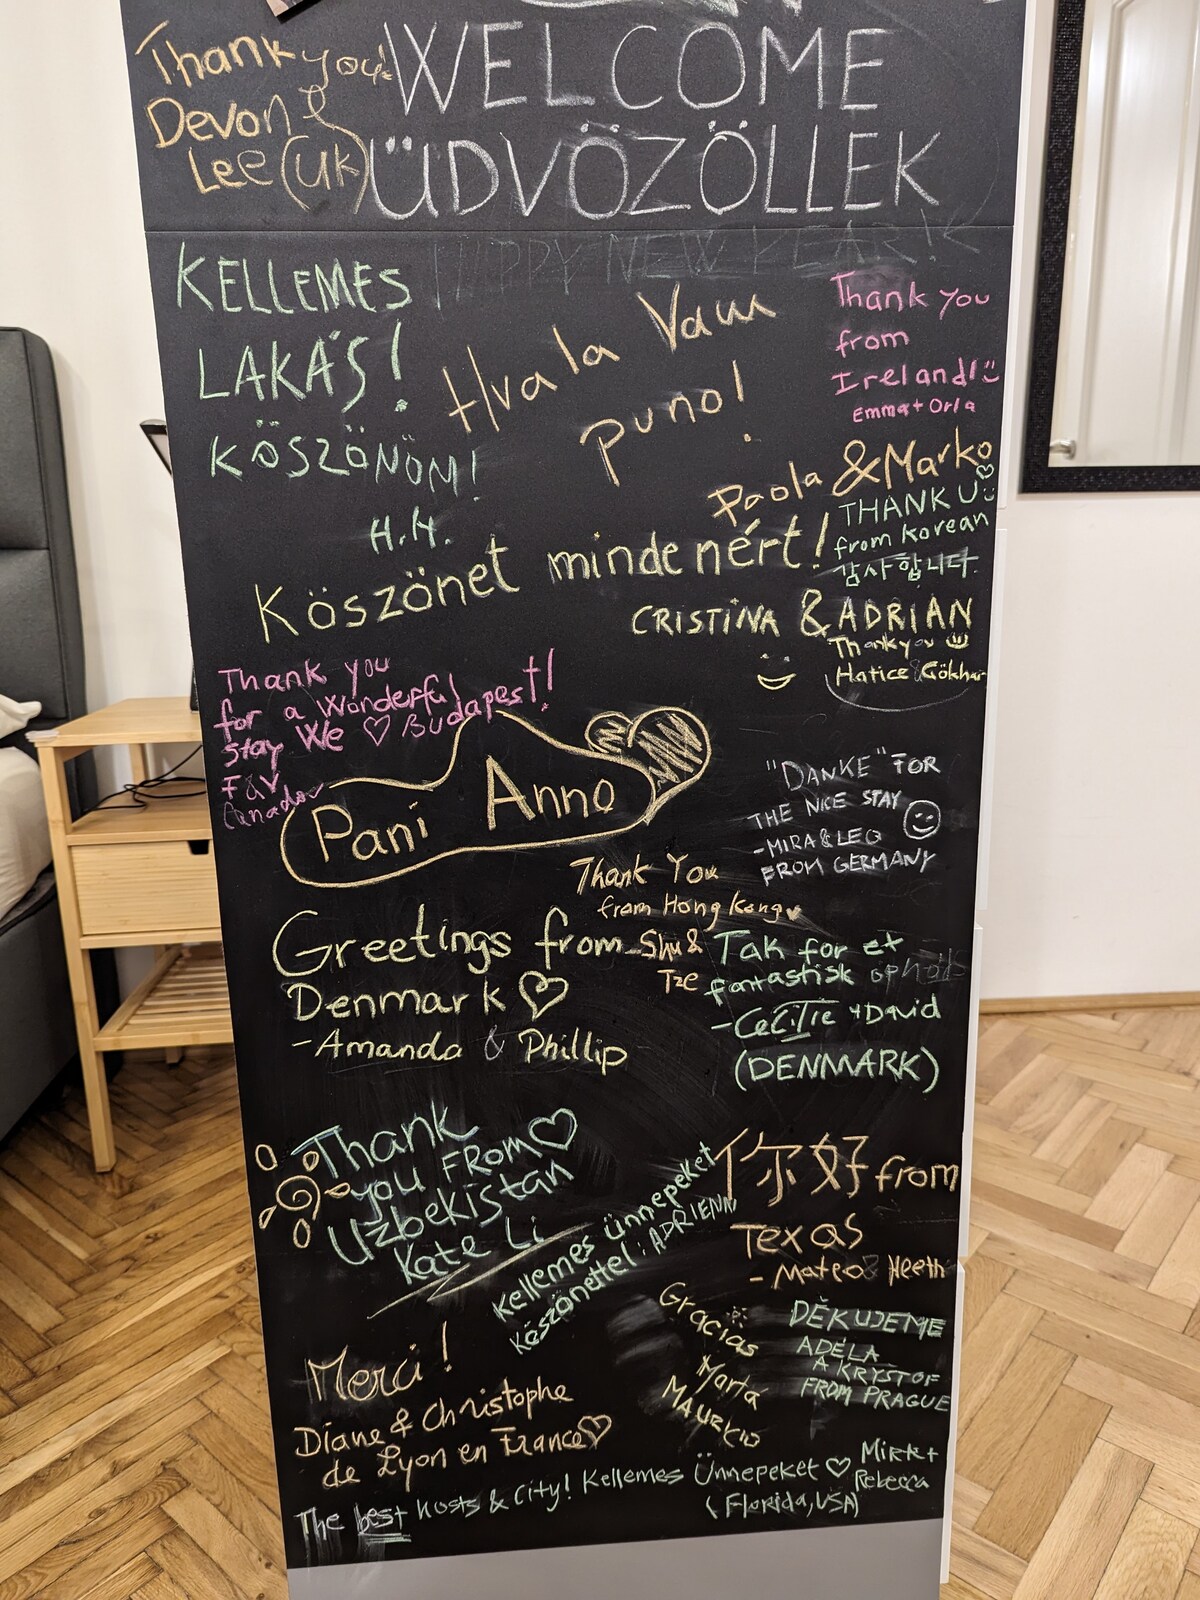 WELCOME
ÜDVÖZÖLLEK
Thank you!
Devon &
Lee (UK)
HAPPY NEW YEAR!
KELLEMES
LAKÁS!
KÖSZÖNÖM!
H.H.
Hvala Vam
puno!
Paola & Marko
Thank you
from
Ireland!
Emma + Orla
THANK U
from Korean
감사합니다.
Köszönet mindenért!
CRISTINA & ADRIAN
Thank you
Hatice & Gökhan
Thank you
for a Wonderful
stay We ♡ Budapest!!
Fay
Canada
Pani Anno
"DANKE" FOR
THE NICE STAY
-MIRA & LEO
FROM GERMANY
Thank You
from Hong Kong
-Shu &
Tze
Greetings from
Denmark ♡
-Amanda & Phillip
Tak for et
fantastisk ophold
-Cecilie + David
(DENMARK)
Thank
you FROM ♡
Uzbekistan
Kate Li
Kellemes ünnepeket
köszönettel: ADRIENN
你好 from
Texas
- Mateo & Heeth
Gracias
Marta
MAURICIO
DĚKUJEME
ADÉLA
A KRYSTOF
FROM PRAGUE
Merci!
Diane & Christophe
de Lyon en France ♡
The best hosts & City! Kellemes Ünnepeket ♡
Rebecca
(Florida, USA)